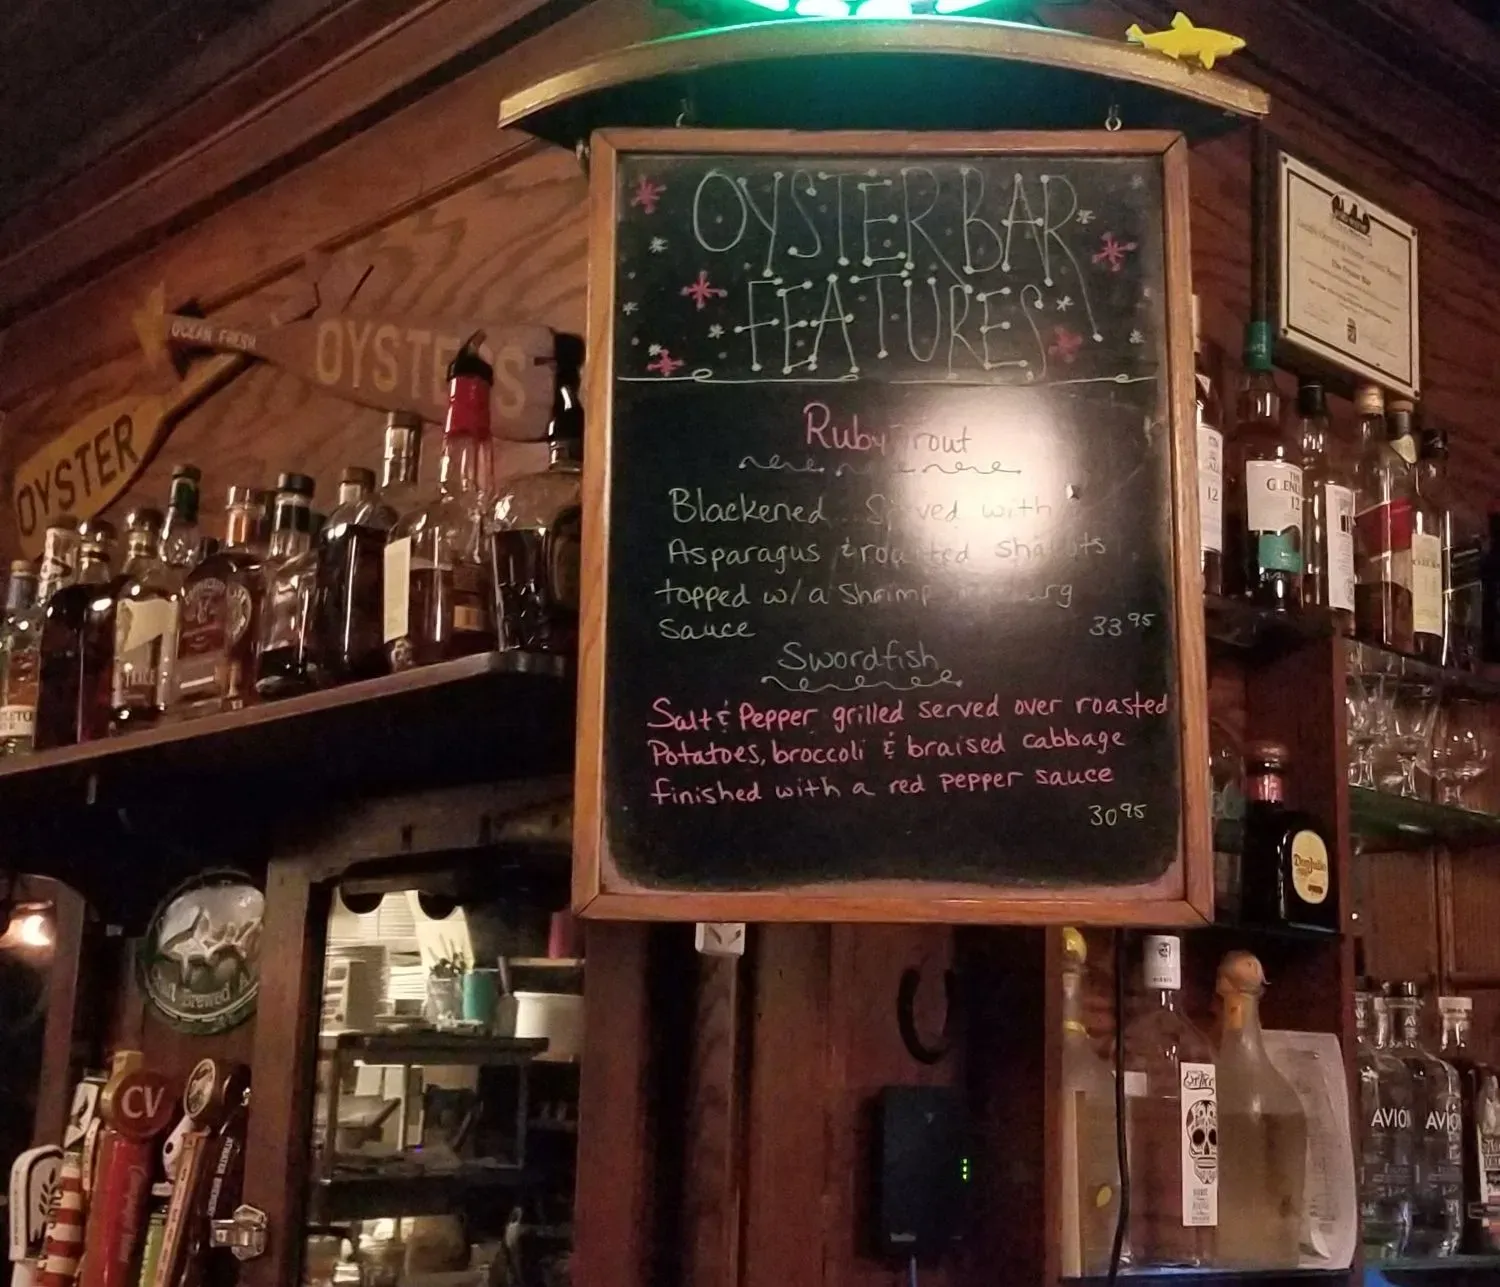 OYSTER BAR
FEATURES
Ruby Trout
Blackened Served with
Asparagus & roasted Shallots
topped w/a Shrimp
Sauce
33 95
Swordfish
Salt & Pepper grilled served over roasted
Potatoes, broccoli & braised cabbage
finished with a red pepper sauce
30 95
OCEAN FRESH
OYSTERS
OYSTER
The Oyster Bar
12
THE
12
Don Julio
CV
Brewed
AVIÓN
AVIÓN